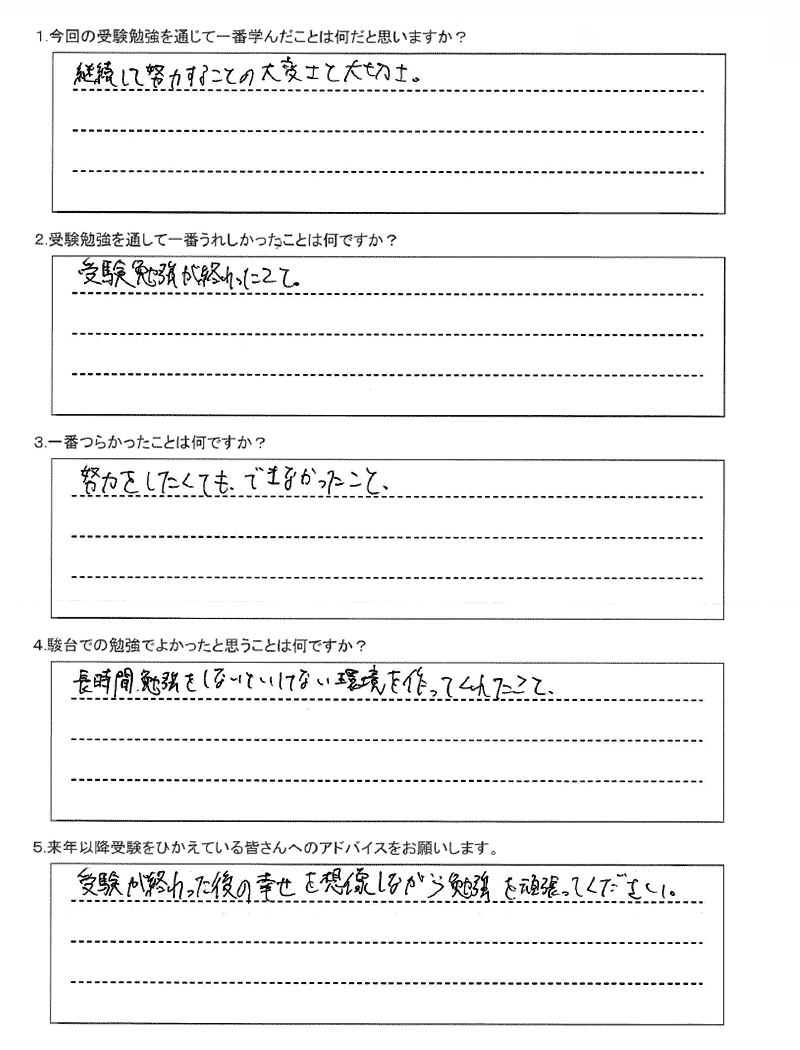 1.今回の受験勉強を通じて一番学んだことは何だと思いますか？
継続して努力することの大変さと大切さ。
2.受験勉強を通して一番うれしかったことは何ですか？
受験勉強が終わったこと。
3.一番つらかったことは何ですか？
努力をしたくても、できなかったこと、
4.駿台での勉強でよかったと思うことは何ですか？
長時間、勉強をしないといけない環境を作ってくれたこと、
5.来年以降受験をひかえている皆さんへのアドバイスをお願いします。
受験が終わった後の幸せを想像しながら勉強を頑張ってください。